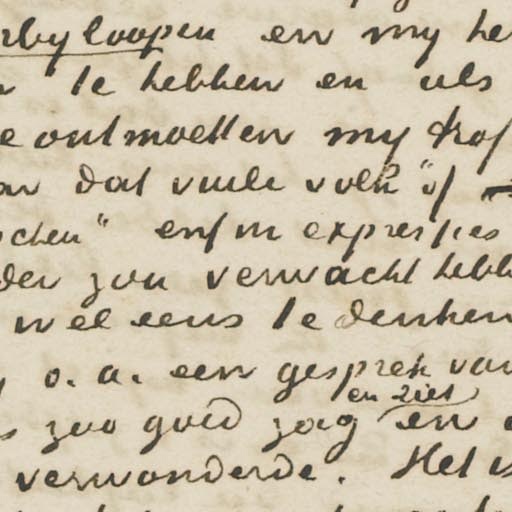 rbyloopen en my he
te hebben en als
e ontmoetten my trof
dat vuile volk" of
schen" enfin expressies
der zou verwacht hebb
wel eens te denken
o. a. een gesprek van
en ziet
s zoo goed zag en
verwonderde. Het is